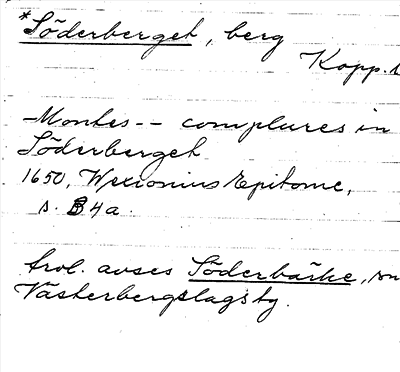 *Söderberget, berg
Kopp.
-Montes -- complures in
Söderberget
1650, Wexionius Epitome,
s. B4a.
trol. avses Söderbärke, sn
Västerbergslags tg.